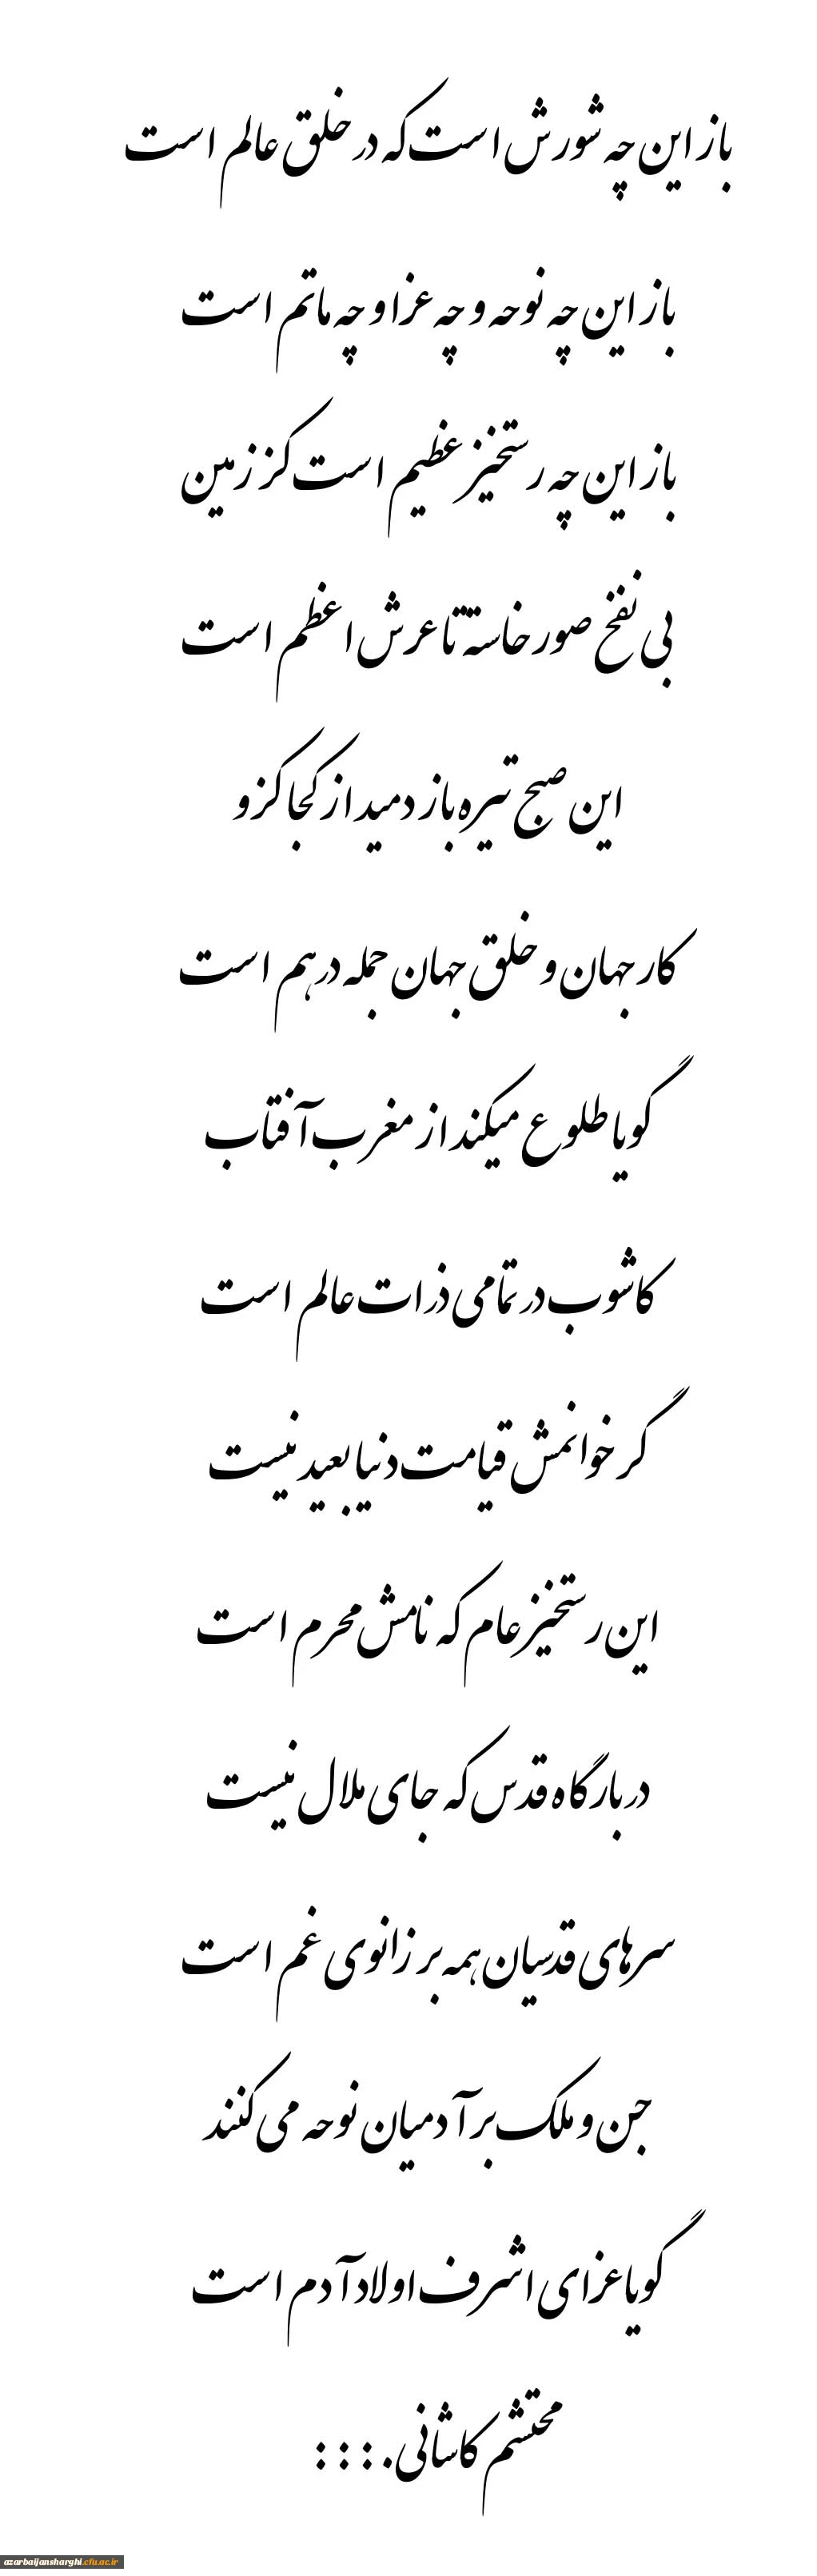 باز این چه شورش است که در خلق عالم است
باز این چه نوحه و چه عزا و چه ماتم است
باز این چه رستخیز عظیم است کز زمین
بی نفخ صور خاسته تا عرش اعظم است
این صبح تیره باز دمید از کجا کزو
کار جهان و خلق جهان جمله درهم است
گویا طلوع میکند از مغرب آفتاب
کاشوب در تمامی ذرات عالم است
گر خوانمش قیامت دنیا بعید نیست
این رستخیز عام که نامش محرم است
در بارگاه قدس که جای ملال نیست
سرهای قدسیان همه بر زانوی غم است
جن و ملک بر آدمیان نوحه می کنند
گویا عزای اشرف اولاد آدم است
محتشم کاشانی.:::
azarbaijansharghi.cfu.ac.ir